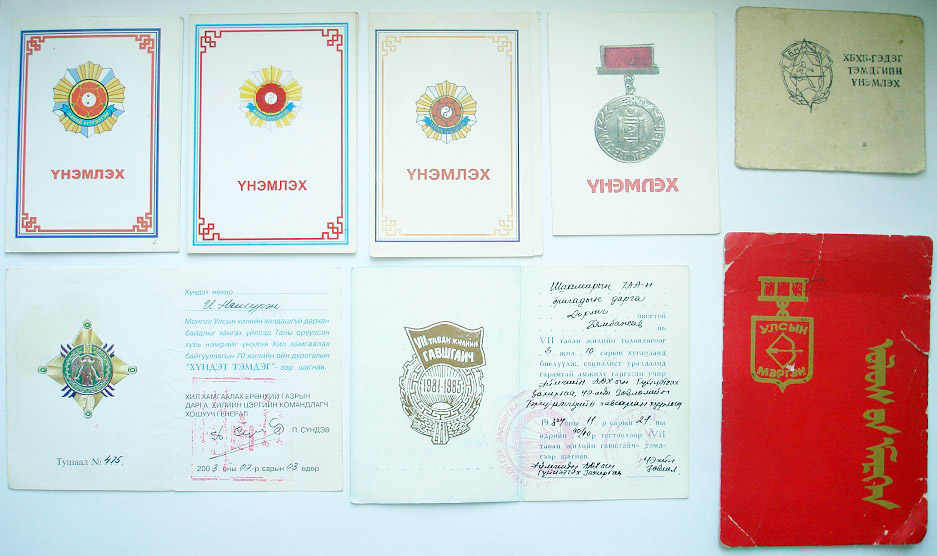 ҮНЭМЛЭХ
ҮНЭМЛЭХ
ҮНЭМЛЭХ
ҮНЭМЛЭХ
ХБХБ-ГЭДЭГ
ТЭМДГИЙН
ҮНЭМЛЭХ
Хүндэт нөхөр
И Нямсүрэн
Монгол Улсын хилийн халдашгүй дархан
байдлыг хангах үйлсэд Таны оруулсан
хувь нэмрийг үнэлэн Хил хамгаалах
байгууллагын 70 жилийн ойн дурсгалын
"ХҮНДЭТ ТЭМДЭГ"- ээр шагнав.
ХИЛ ХАМГААЛАХ ЕРӨНХИЙ ГАЗРЫН
ДАРГА, ХИЛИЙН ЦЭРГИЙН КОМАНДЛАГЧ
ХОШУУЧ ГЕНЕРАЛ
П. СҮНДЭВ
Тушаал № 475.
2003 оны 07-р сарын 03. өдөр
VII ТАВАН ЖИЛИЙН
ГАВШГАЙЧ
1981-1985
Шаамарын САА-н
бригадын дарга
овогтой
Дамбажав нь
VII таван жилийн төлөвлөгөөг
3 жил 10 сарын хугацаанд
биелүүлж, социалист уралдаанд
гарамгай амжилт гаргасан учир
Аймгийн АДХ-ын Гүйцэтгэх
захиргаа,
хурлын
1984 оны 11-р сарын 21-ны
өдрийн 90/40-р тогтоолоор «VII
таван жилийн гавшгайч» тэмд-
гээр шагнав.
Аймгийн АДХ-ын
Гүйцэтгэх Захиргаа
УЛСЫН
МЭРГЭН